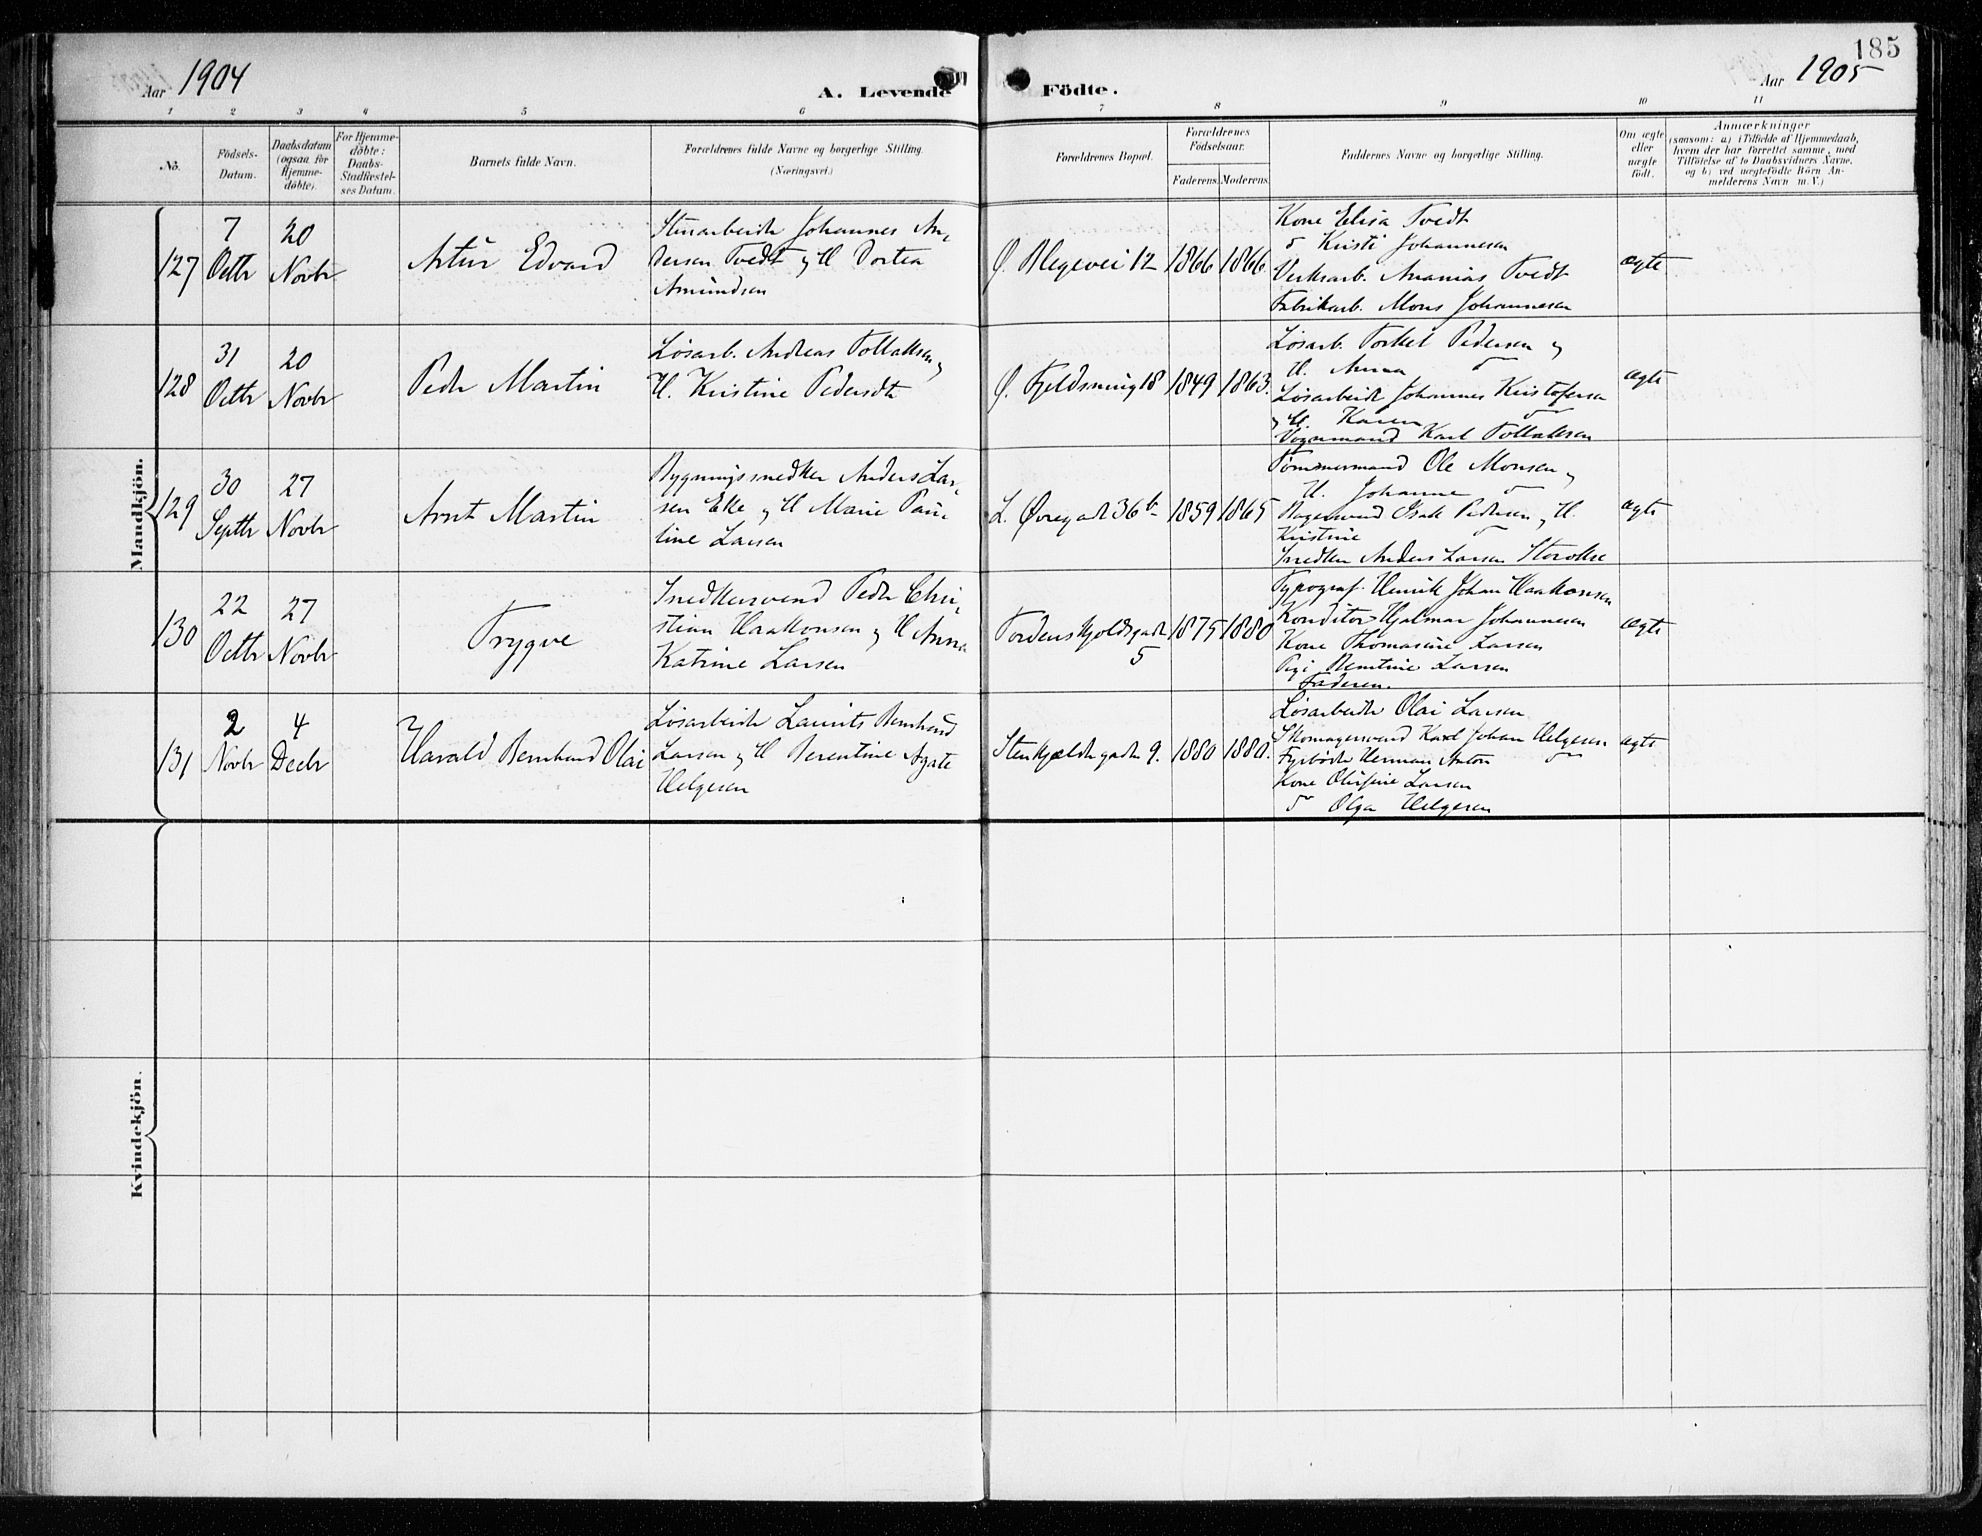 185
Aar 1904
A. Levende
Födte.
Aar 1905
1 2 3 4 5 6 7 8 9 10 11
No.
Födsels-
Datum.
Daabsdatum
(ogsaa for
Hjemme-
döbte).
For Hjemme-
döbte:
Daabs-
Stadfæstel-
ses Datum.
Barnets fulde Navn.
Forældrenes fulde Navne og borgerlige Stilling.
(Næringsvei.)
Forældrenes Bopæl.
Forældrenes
Födselsaar.
Faderens.
Moderens.
Faddernes Navne og borgerlige Stilling.
Om ægte
eller
uægte
födt.
Anmærkninger
(saasom: a) i Tilfælde af Hjemmedaab,
hvem der har forrettet samme, med
Tilföielse af to Daabsvidners Navne,
og b) ved uægtefödte Börn An-
melderens Navn m. V.)
Mandkjön.
127
7
Octbr
20
Novbr
Artur Edvard
Stenarbeider Johannes An-
dersen Tvedt og H Dortea
Amundsen
Ø. Blegevei 12
1866
1866.
Kone Elisa Tvedt
do Kristi Johannesen
Verksarb. Ananias Tvedt
Fabrikarb. Mons Johannesen
ægte
128
31
Octbr
20
Novbr
Peder Martin
Løsarb. Andreas Tollaksen og
H. Kristine Pedersdtr
Ø. Fjeldsmug 18
1849
1863.
Løsarb. Torkel Pedersen og
H. Anna do
Løsarbeider Johannes Kristofersen
og H. Karen do
Vognmand Karl Tollaksen
ægte
129
30
Septbr
27
Novbr
Arnt Martin
Bygningssnedker Anders Lar-
sen Eke og H Marie Pau-
line Larsen
L. Øvregade 36 b
1859
1865
Tømmermand Ole Monsen og
H. Johanne do
Bagersvend Isak Pedersen og H.
Kristine do
Snedker Anders Larsen Storokse
ægte
130
22
Octbr
27
Novbr
Trygve
Snedkersvend Peder Chri-
stian Haakonsen og H Anna
Katrine Larsen
Tordenskjoldsgade
5
1875
1880
Typograf Henrik Johan Haakonsen
Konditor Hjalmar Johannesen
Kone Thomasine Larsen
Pige Berntine Larsen
Faderen.
ægte
131
2
Novbr
4
Decbr
Harald Bernhard Olai
Løsarbeider Laurits Bernhard
Larsen og H Berentine Agate
Helgesen
Stenkjeldergaden 9.
1880
1880.
Løsarbeider Olai Larsen
Skomagersvend Karl Johan Helgesen
Fyrbøder Herman Anton do
Kone Olufine Larsen
do Olga Helgesen
ægte
Kvindekjön.